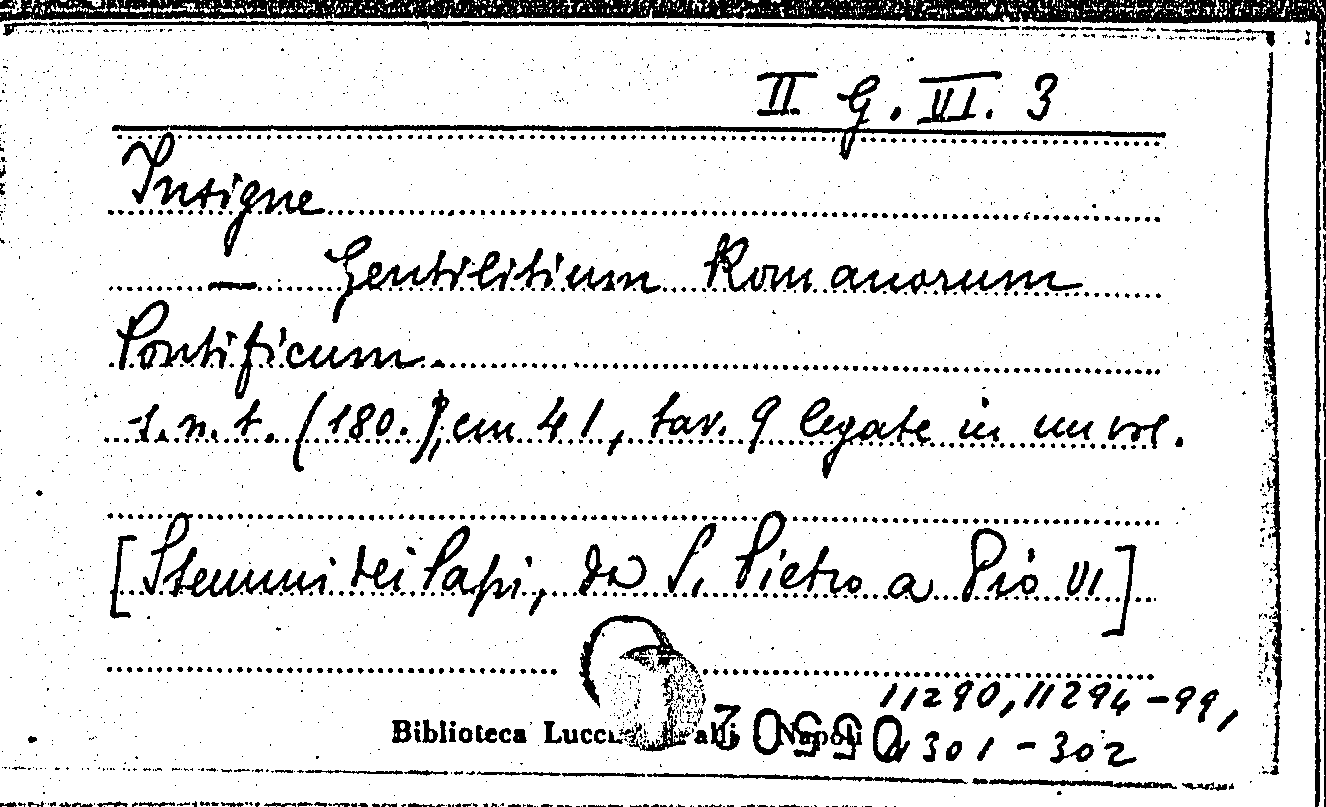 II G. VI. 3
Insigne
— Gentilitium Romanorum
Pontificum.
s.n.t. (180.), cm 41, tav. 9 legate in un vol.
[Stemmi dei Papi, da S. Pietro a Pio VI]
11290, 11294-99,
301-302
Biblioteca Napoli